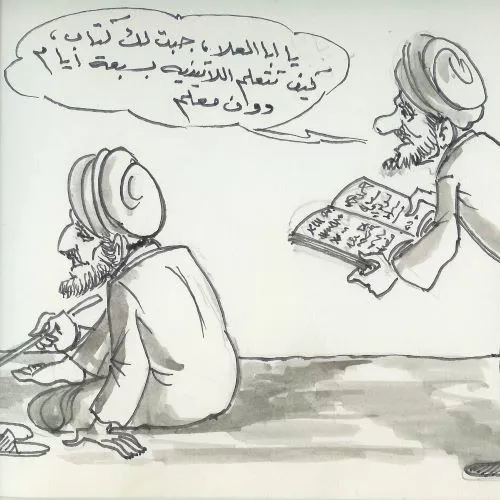 يا ابا العلا، جبت لك كتاب،
كيف تتعلم اللاتينيه بسبعة ايام
دون معلم